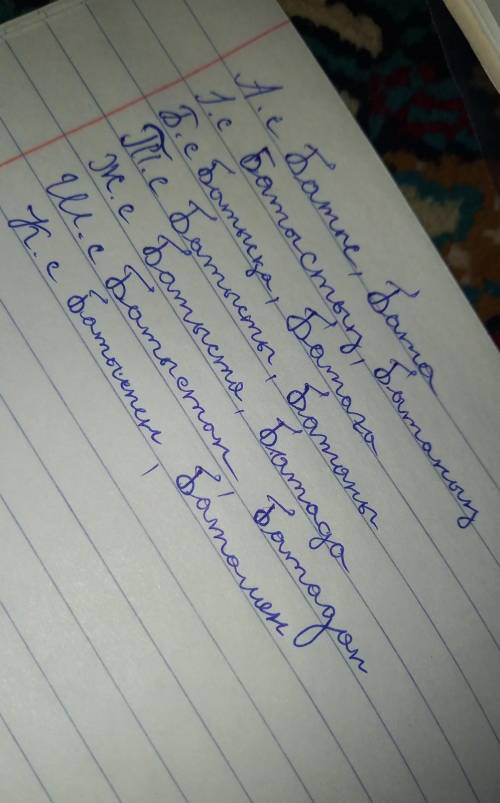 А.с Батыс, Бата
І.с Батыстың, Батаның
Б.с Батысқа, Батаға
Т.с Батысты, Батаны
Ж.с Батыста, Батада
Ш.с Батыстан, Батадан
К.с Батыспен, Батамен